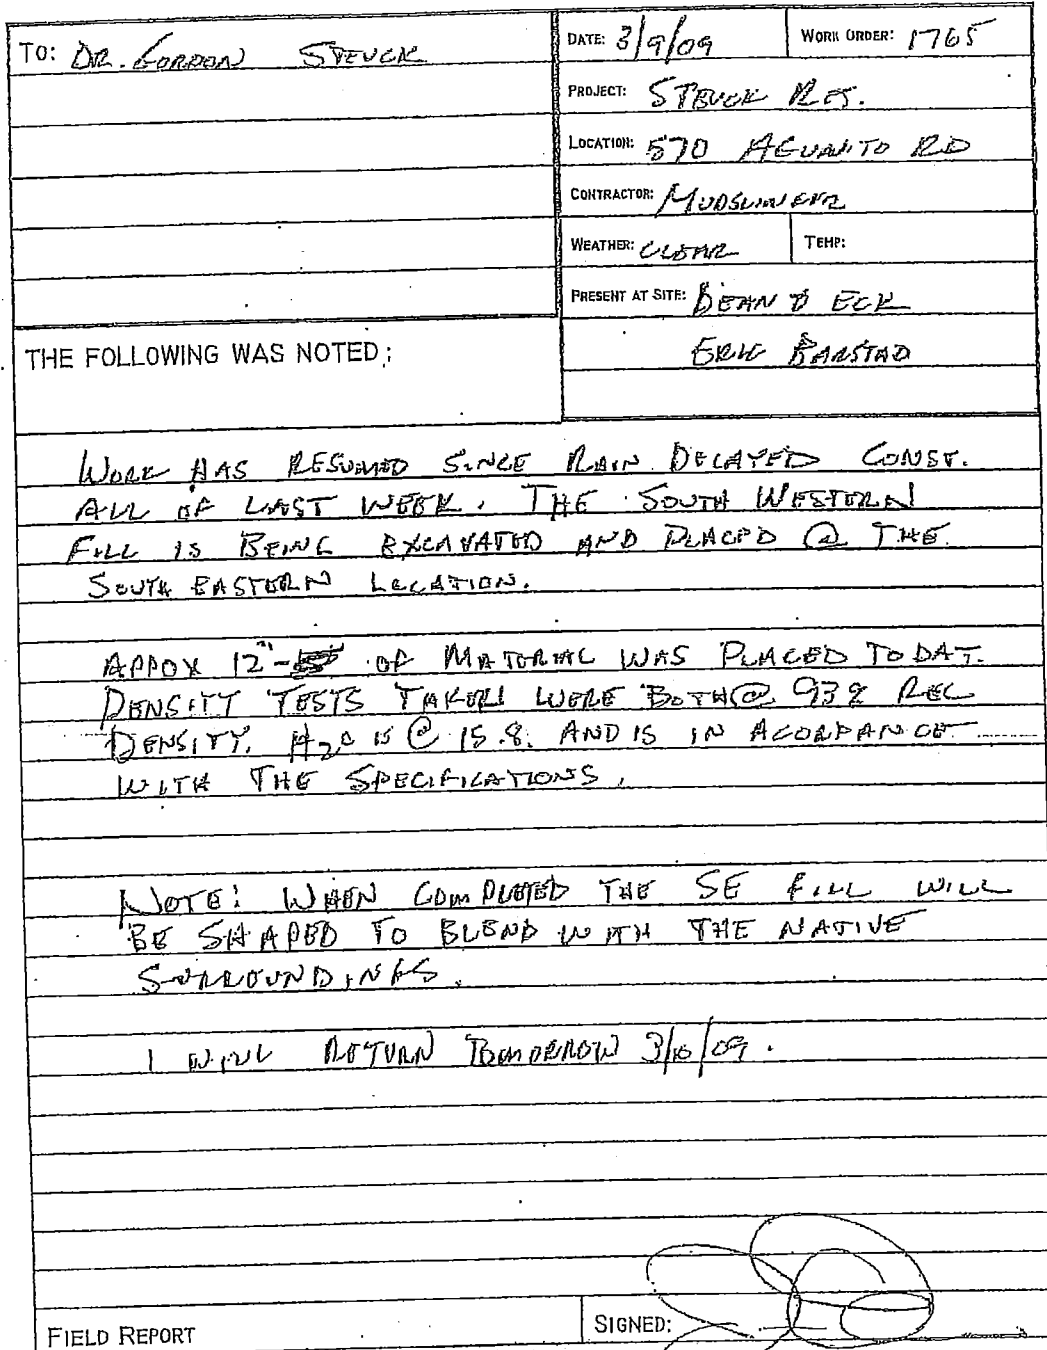 TO: DR. GORDON STEUCK
DATE: 3/9/09
WORK ORDER: 1765
PROJECT: STEUCK RES.
LOCATION: 570 AGUAJITO RD
CONTRACTOR: MUDSLINGER
WEATHER: CLEAR
TEMP:
PRESENT AT SITE: DEAN D ECK
ERIC BARSTAD
THE FOLLOWING WAS NOTED:
WORK HAS RESUMED SINCE RAIN DELAYED CONST.
ALL OF LAST WEEK. THE SOUTH WESTERN
FILL IS BEING EXCAVATED AND PLACED @ THE
SOUTH EASTERN LOCATION.
APPOX 12" - OF MATERIAL WAS PLACED TODAY.
DENSITY TESTS TAKEN WERE BOTH @ 93% REL
DENSITY. H2O IS @ 15.8. AND IS IN ACORDANCE
WITH THE SPECIFICATIONS.
NOTE: WHEN COMPLETED THE SE FILL WILL
BE SHAPED TO BLEND WITH THE NATIVE
SURROUNDINGS.
I WILL RETURN TOMORROW 3/10/09.
FIELD REPORT
SIGNED: